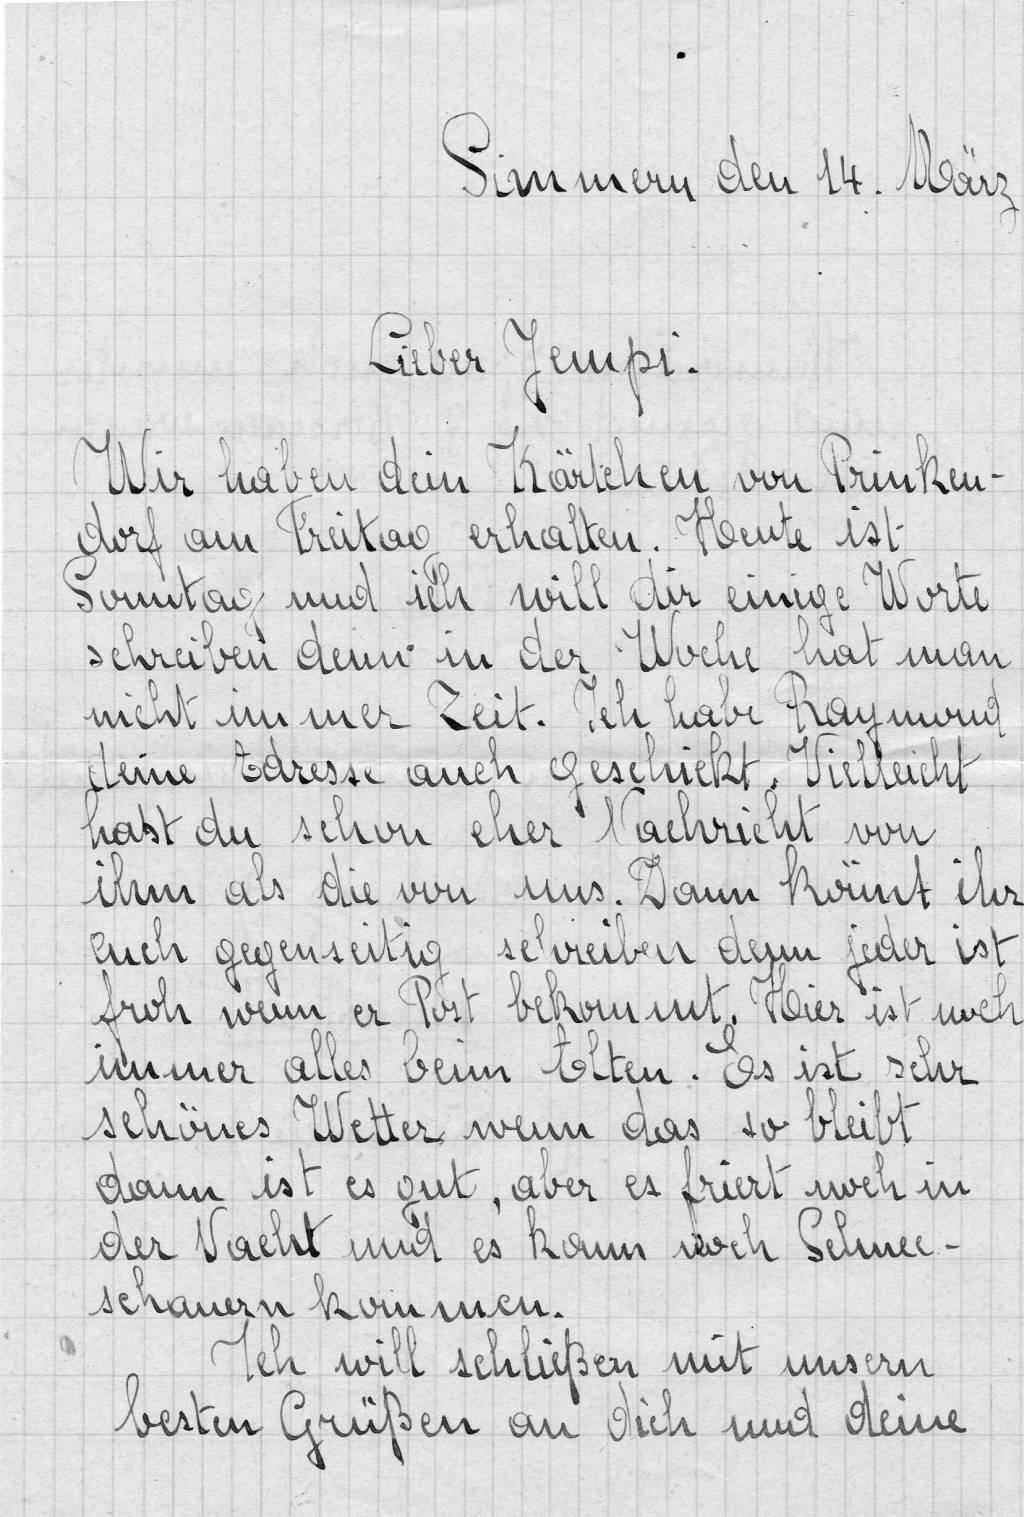 Simmern den 14. März
Lieber Jempi.
Wir haben dein Kärtchen von Prinken-
dorf am Freitag erhalten. Heute ist
Sonntag und ich will dir einige Worte
schreiben denn in der Woche hat man
nicht immer Zeit. Ich habe Raymond
deine Adresse auch geschickt. Vielleicht
hast du schon eher Nachricht von
ihm als die von uns. Dann könnt ihr
euch gegenseitig schreiben denn jeder ist
froh wenn er Post bekommt. Hier ist noch
immer alles beim Alten. Es ist sehr
schönes Wetter wenn das so bleibt
dann ist es gut, aber es friert noch in
der Nacht und es kann noch Schnee-
schauern kommen.
Ich will schließen mit unsern
besten Grüßen an dich und deine